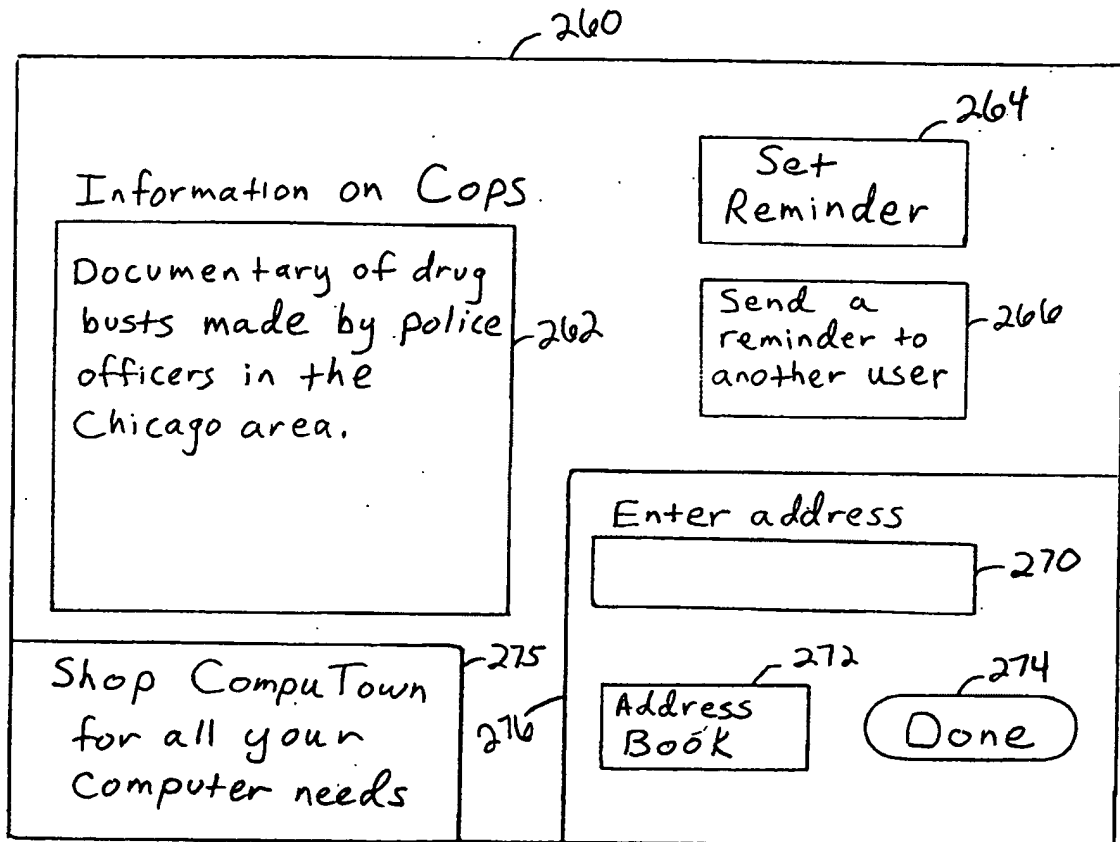 260
264
Set
Reminder
Information on Cops
Documentary of drug
busts made by police
officers in the
Chicago area.
262
Send a
reminder to
another user
266
Enter address
270
275
Shop CompuTown
for all your
Computer needs
276
272
Address
Book
274
Done